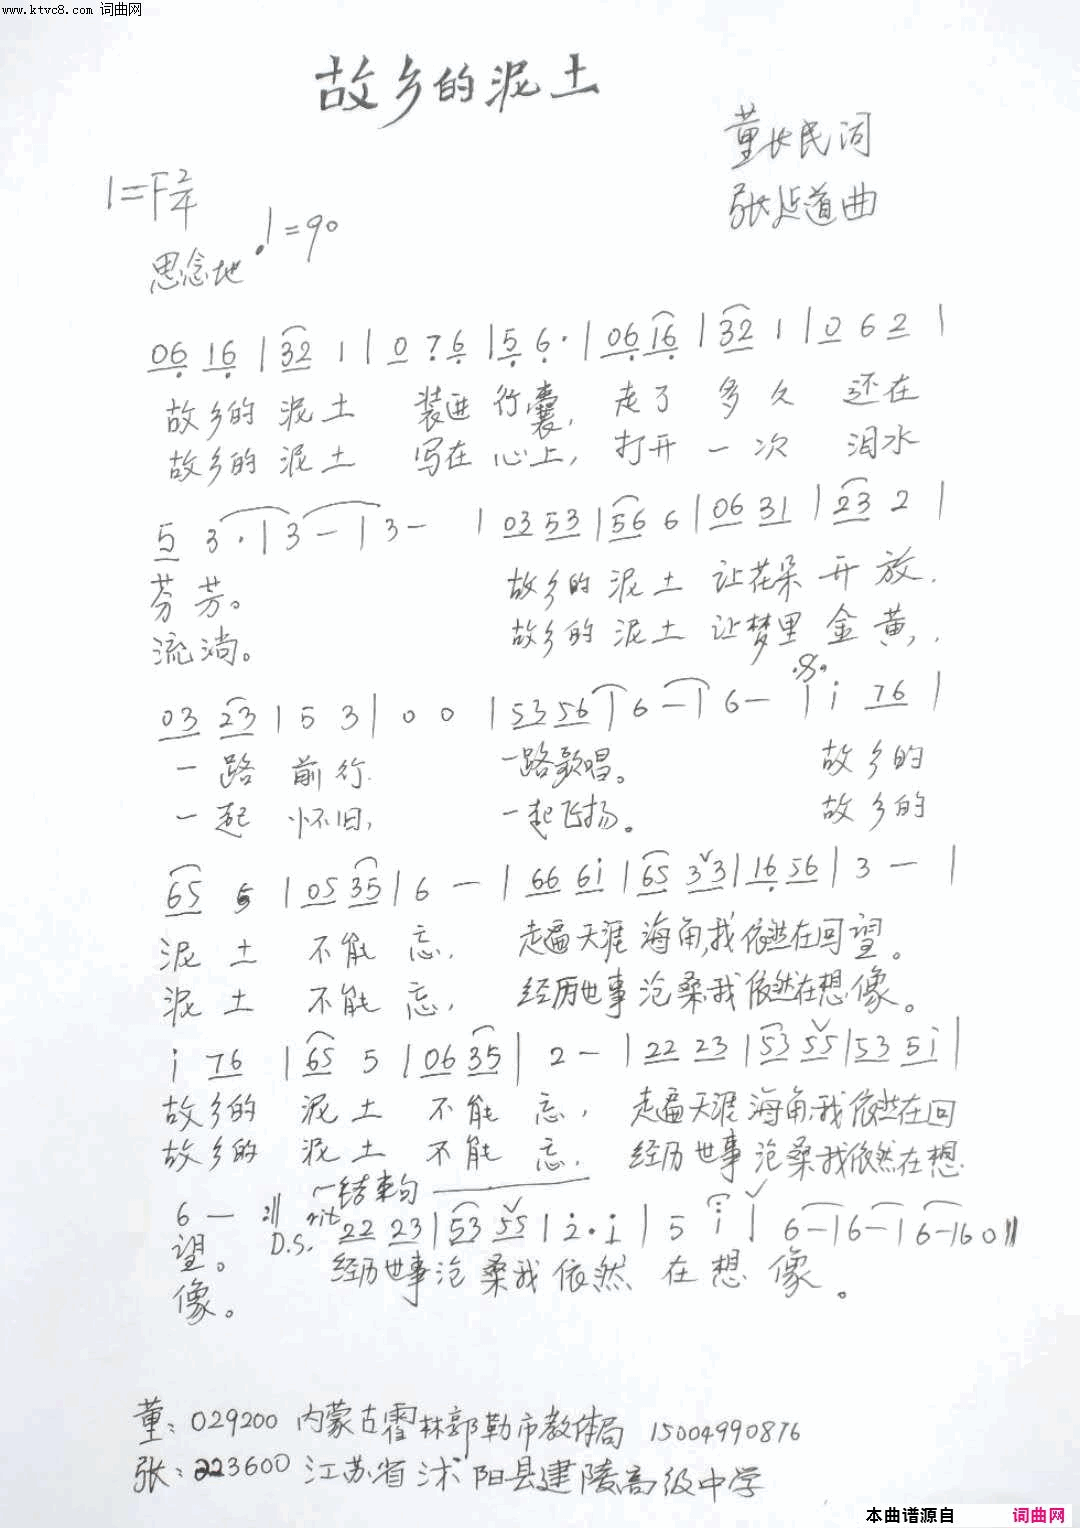 www.ktvc8.com 词曲网
故乡的泥土
董长民词
1=F 2/4
张道曲
思念地 ♩=90
06 16 | 32 1 | 0 76 | 5 6· | 06 16 | 32 1 | 0 6 2 |
故乡的 泥土 装进 行囊, 走了 多久 还在
故乡的 泥土 写在 心上, 打开 一次 泪水
5 3· | 3 — | 3 — | 03 53 | 56 6 | 06 31 | 23 2 |
芬芳。 故乡的 泥土 让花朵 开放,
流淌。 故乡的 泥土 让梦里 金黄,
03 23 | 5 3 | 0 0 | 53 56 | 6 — | 6 — | i 76 |
一路 前行 一路歌唱。 故乡的
一起 怀旧, 一起飞扬。 故乡的
65 5 | 05 35 | 6 — | 66 6i | 65 33 | 16 56 | 3 — |
泥土 不能 忘, 走遍天涯 海角,我依然在回望。
泥土 不能 忘, 经历世事 沧桑我依然在想像。
i 76 | 65 5 | 06 35 | 2 — | 22 23 | 53 55 | 53 5i |
故乡的 泥土 不能 忘, 走遍天涯 海角,我依然在回
故乡的 泥土 不能 忘, 经历世事 沧桑我依然在想
结束句
6 — :‖ D.S. rit 22 23 | 53 55 | 2· i | 5 i | 6 — | 6 — | 6 — | 6 0 ‖
望。 经历世事沧桑我 依然 在想像。
像。
董: 029200 内蒙古霍林郭勒市教体局 15004990876
张: 223600 江苏省沭阳县建陵高级中学
本曲谱源自 词曲网